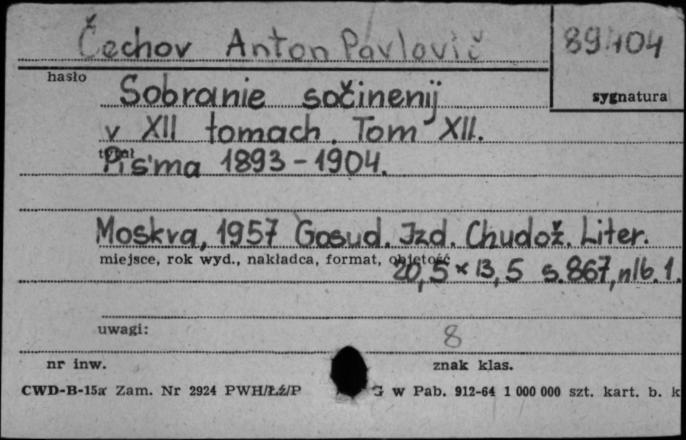 Čechov Anton Pavlovič
89404
hasło
sygnatura
Sobranie sočinenij
v XII tomach. Tom XII.
Pis'ma 1893-1904.
Moskva, 1957 Gosud. Izd. Chudož. Liter.
miejsce, rok wyd., nakładca, format, objętość
20,5 x 13,5 s. 867, nlb. 1.
uwagi:
8
nr inw.
znak klas.
CWD-B-15a Zam. Nr 2924 PWH/Łź/P
G w Pab. 912-64 1 000 000 szt. kart. b. k